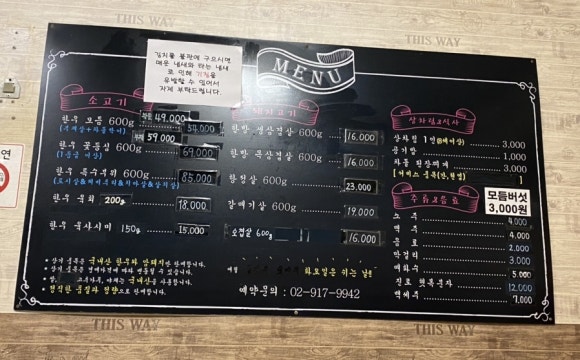 THIS WAY
THIS WAY
김치를 불판에 구으시면
매운 냄새와 타는 냄새
로 인해 기침을
유발할 수 있어서
자제 부탁드립니다.
MENU
소고기
49,000
한우 모듬 600g 54,000
59,000
한우 꽃등심 600g 69,000
한우 특수부위 600g 85,000
한우 육회 200g 18,000
한우 육사시미 150g 15,000
돼지고기
한방 생삼겹살 600g 16,000
한방 목삼겹살 600g 16,000
항정살 600g 23,000
갈매기살 600g 19,000
600g 16,000
상차림&식사
상차림 1인 3,000
공기밥 1,000
차돌 된장찌개 3,000
주류&음료
모듬버섯
3,000원
소주 4,000
맥주 4,000
음료 2,000
막걸리 3,000
매화수 5,000
진로 햇복분자 12,000
백세주 7,000
화요일은 쉬는 날
예약문의 : 02-917-9942
THIS WAY
THIS WAY
THIS WAY